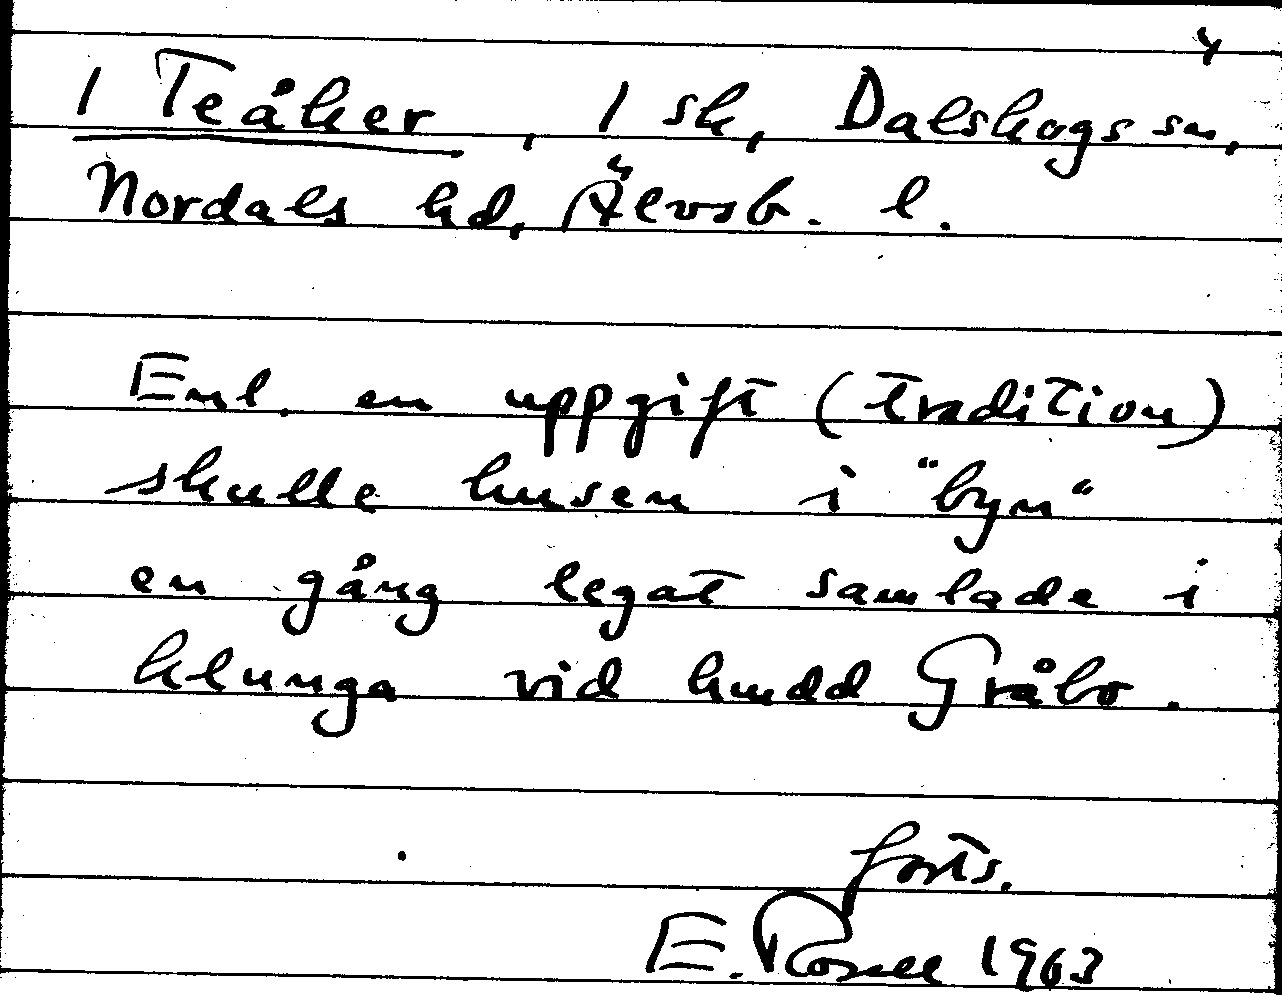 4
1 Teåker, 1 sk, Dalskogs sn,
Nordals hd, Älvsb. l.
Enl. en uppgift (tradition)
skulle husen i "byn"
en gång legat samlade i
klunga vid hmdd Gråbo.
forts.
E. Rosell 1963